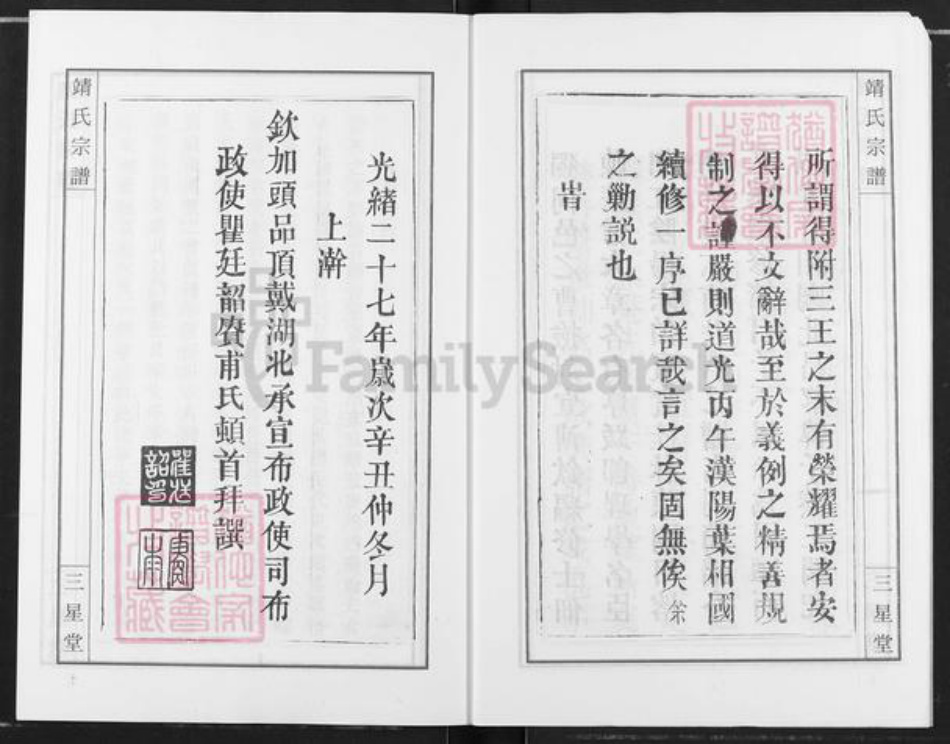 靖氏宗譜
所謂得附三王之末有榮耀焉者安
得以不文辭哉至於義例之精善規
制之謹嚴則道光丙午漢陽葉相國
續修一序已詳哉言之矣固無俟余
之勦説也
旹
三星堂
靖氏宗譜
光緒二十七年歲次辛丑仲冬月
上澣
欽加頭品頂戴湖北承宣布政使司布
政使瞿廷韶賡甫氏頓首拜譔
瞿廷韶印
賡甫
三星堂
FamilySearch